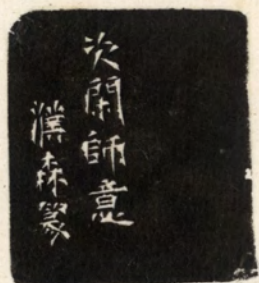 次閑師意
濮森篆